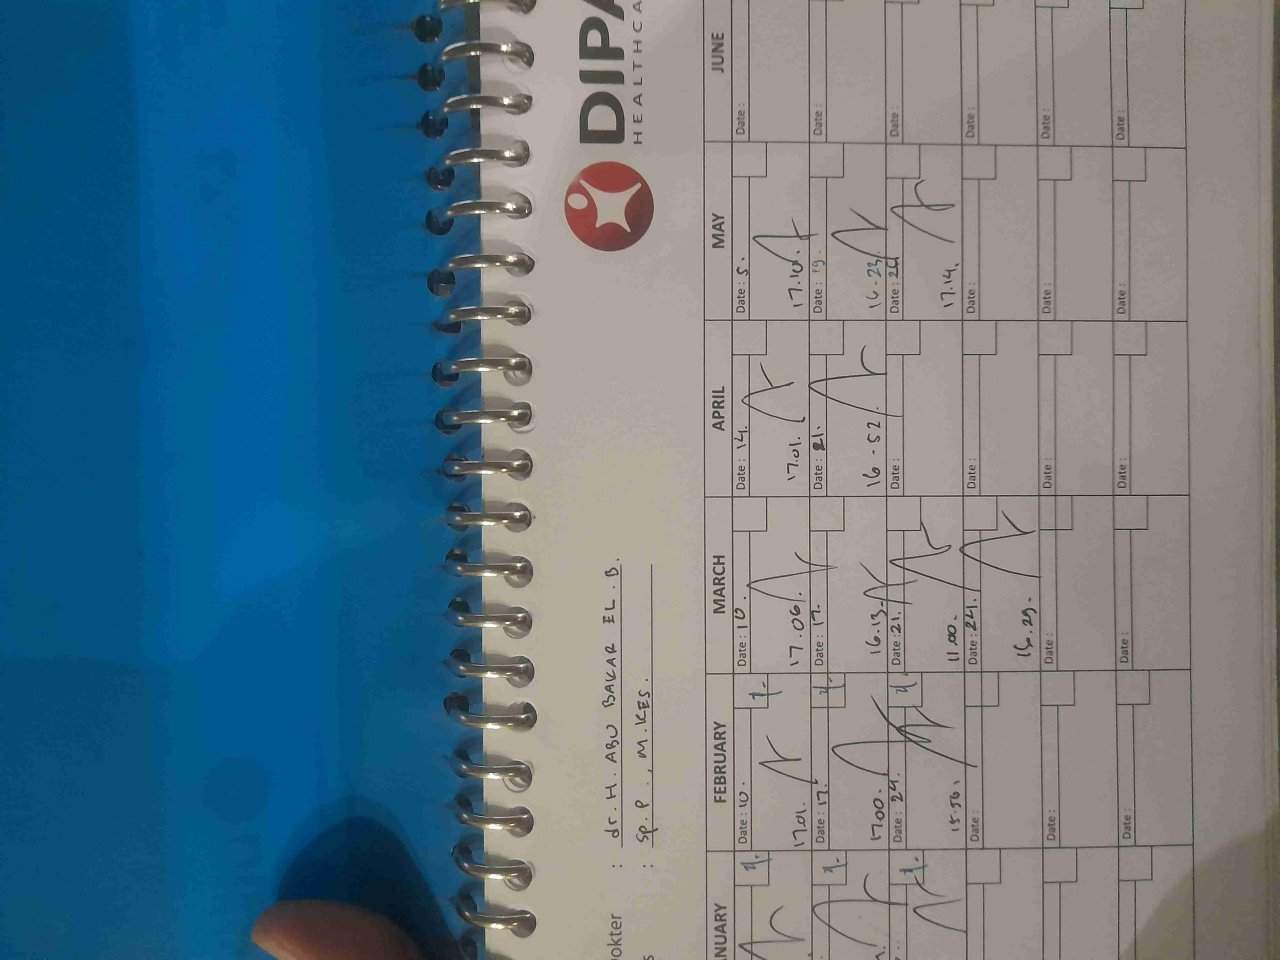 DIPA
HEALTHCA
okter : dr. H. ABU BAKAR EL. B.
s : Sp. P., M. KES.
NUARY FEBRUARY MARCH APRIL MAY JUNE
Date: 10. Date: 10. Date: 14. Date: 5. Date:
17.01. 17.06. 17.01. 17.10.
Date: 17. Date: 17. Date: 21. Date: 19. Date:
17.00. 16.13. 16-52. 16.23.
Date: 24. Date: 21. Date: Date: 26 Date:
15.50. 11.00. 17.14.
Date: Date: 24. Date: Date: Date:
15.29.
Date: Date: Date: Date: Date:
Date: Date: Date: Date: Date: